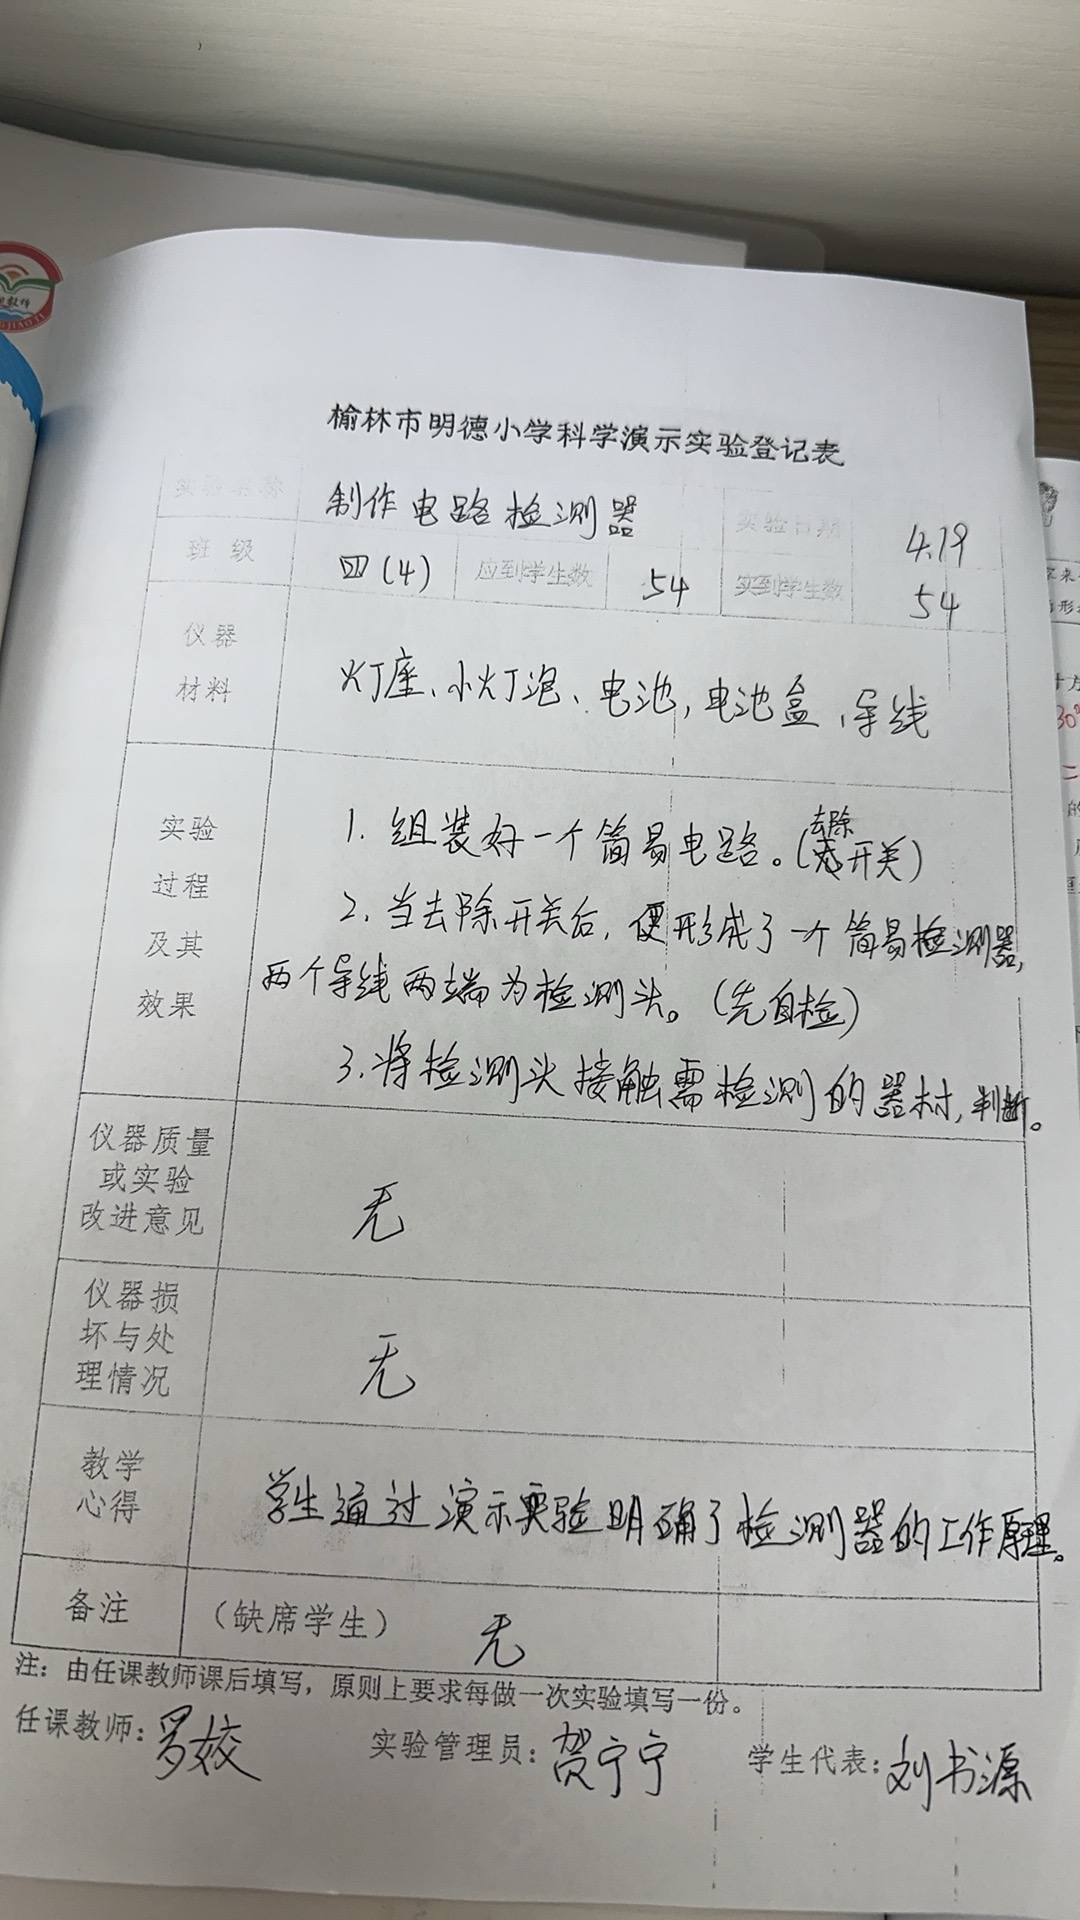 榆林市明德小学科学演示实验登记表
实验名称 制作电路检测器 实验日期 4.19
班级 四(4) 应到学生数 54 实到学生数 54
仪器
材料
灯座、小灯泡、电池,电池盒,导线
实验
过程
及其
效果
1. 组装好一个简易电路。(去除开关)
2. 当去除开关后,便形成了一个简易检测器,
两个导线两端为检测头。(先自检)
3. 将检测头接触需检测的器材,判断。
仪器质量
或实验
改进意见
无
仪器损
坏与处
理情况
无
教学
心得
学生通过演示实验明确了检测器的工作原理。
备注 (缺席学生) 无
注:由任课教师课后填写,原则上要求每做一次实验填写一份。
任课教师:罗姣 实验管理员:贺宁宁 学生代表:刘书源